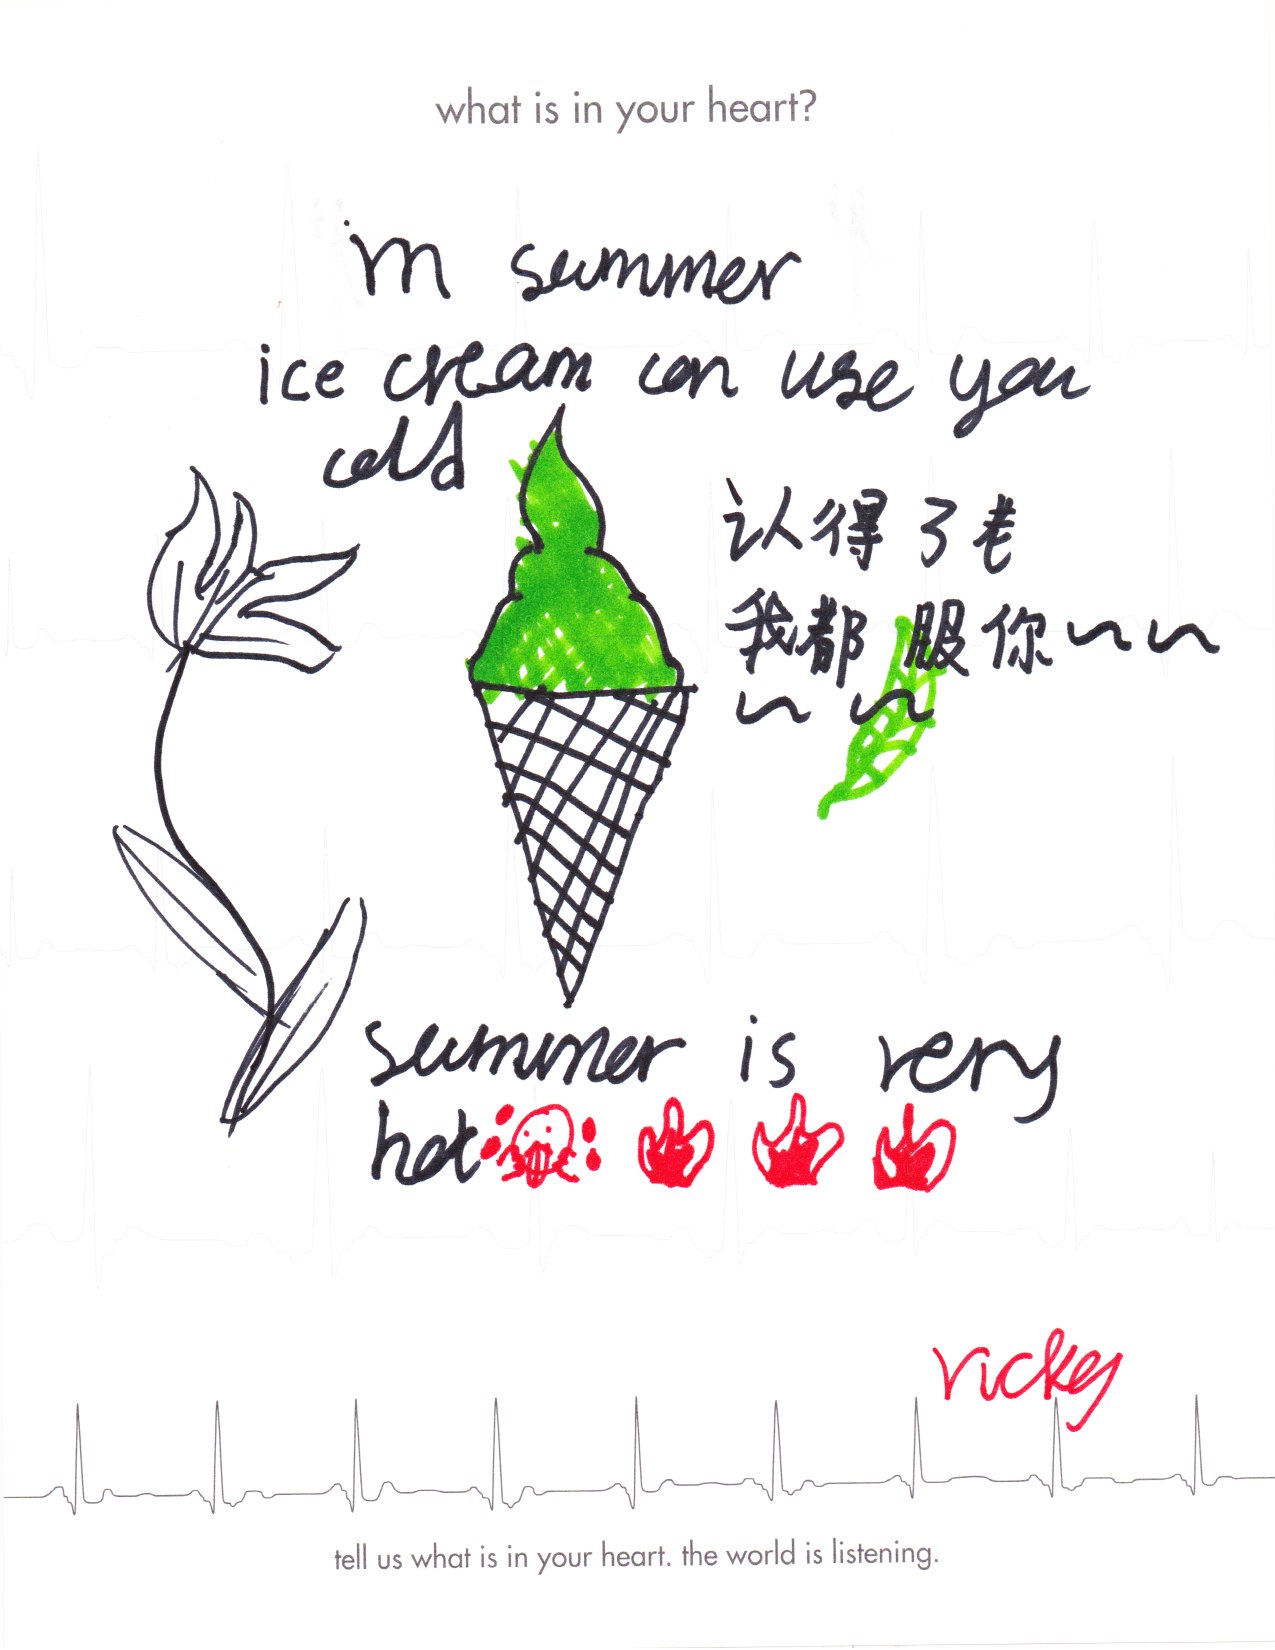 what is in your heart?
in summer
ice cream can use you
cold
认得了老
我都服你~~
~~
summer is very
hot
vicky
tell us what is in your heart. the world is listening.